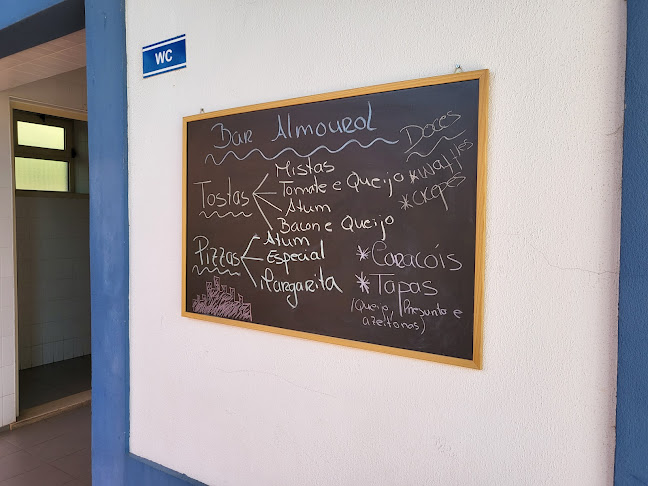 WC
Bar Almourol
Doces
*Waffles
*Crepes
Tostas
Mistas
Tomate e Queijo
Atum
Bacon e Queijo
Pizzas
Atum
Especial
Margarita
*Caracóis
*Tapas
(Queijo, Presunto e
azeitonas)